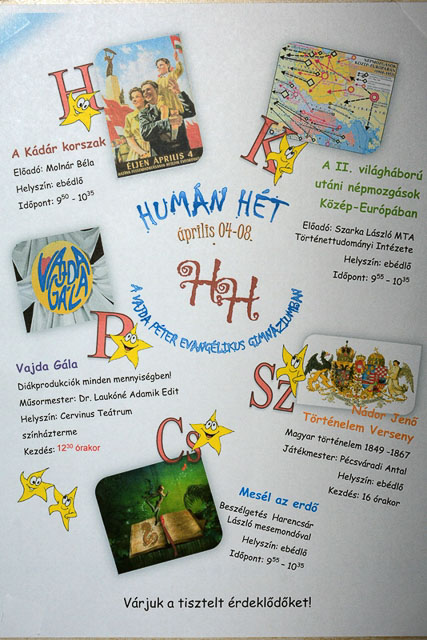 H
A Kádár korszak
Előadó: Molnár Béla
Helyszín: ebédlő
Időpont: 9⁵⁰ - 10³⁵
ÉLJEN ÁPRILIS 4
K
NÉPMOZGÁS
KÖZÉP-EURÓPÁBAN
A II. világháború
utáni népmozgások
Közép-Európában
Előadó: Szarka László MTA
Történettudományi Intézete
Helyszín: ebédlő
Időpont: 9⁵⁵ - 10³⁵
HUMÁN HÉT
április 04-08.
HH
A VAJDA PÉTER EVANGÉLIKUS GIMNÁZIUMBAN
VAJDA
GÁLA
P
Vajda Gála
Diákprodukciók minden mennyiségben!
Műsormester: Dr. Laukóné Adamik Edit
Helyszín: Cervinus Teátrum
színházterme
Kezdés: 12³⁰ órakor
Sz
Nádor Jenő
Történelem Verseny
Magyar történelem 1849 -1867
Játékmester: Pécsváradi Antal
Helyszín: ebédlő
Kezdés: 16 órakor
Cs
Mesél az erdő
Beszélgetés Harencsár
László mesemondóval
Helyszín: ebédlő
Időpont: 9⁵⁵ - 10³⁵
Várjuk a tisztelt érdeklődőket!